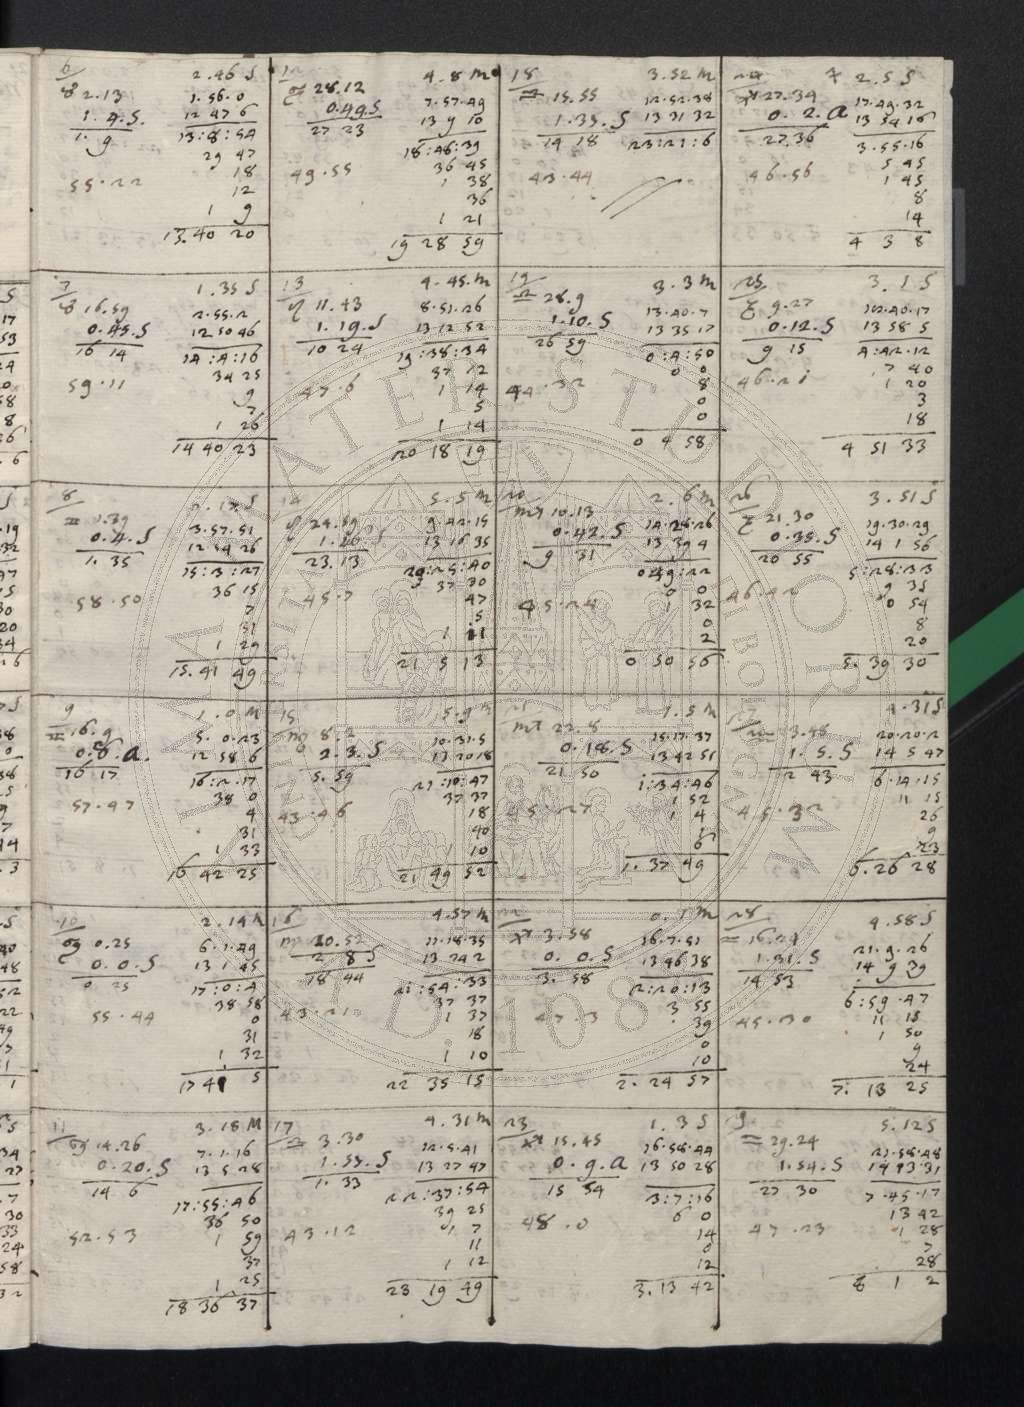 6
2.46 S
♉ 2.13
1.56.0
1.4.S.
12 47 6
1. 9
13:8:54
29 47
18
55.22
12
1 9
13.40 20
7
1.35 S
♉ 16.59
2.55.2
0.45.S
12 50 46
16 14
14:4:16
34 25
59.11
9
7
1 26
14 40 23
8
♊ 1.39
3.57.51
0.4.S
12 54 26
1.35
15:3:27
36 15
58.50
7
31
1 29
15.41 49
9
1.0 M
♊ 16.9
5.0.23
0.8.a.
12 58 6
16 17
16:2.17
38 0
57.47
4
31
1 33
16 42 25
10
2.14
♋ 0.25
6.1.49
0.0.S
13 1 45
0 25
17:0:4
38.58
55.44
0
31
1 32
17 41 5
11
3.18 M
♋ 14.26
7.1.16
0.20.S
13 5 28
14 6
17:55:46
36 50
52.53
1 59
37
1 25
18 36 37
4.8 m
♌ 28.12
7.57.49
0.49.S
13 9 10
27 23
18:48:39
36 45
49.55
1 38
36
1 21
19 28 59
13
4.45.m
♌ 11.43
8.51.26
1.19.S
13 12 52
10 24
19:38:34
37 12
47.6
1 14
5
1 14
20 18 19
14
5.5 m
♌ 24.59
9.42.15
13 16 35
23.13
20:25:40
37 30
45.7
47
5
1 11
21 5 13
15
5.9 m
♍ 8.2
10.31.5
2.3.S
13 20 18
5.59
21:10:47
37 37
43.46
18
40
1 10
21 49 52
16
4.57 m
♍ 20.52
11.18.35
2 8 S
13 24 2
18 44
21:54:33
37 37
1 37
18
1 10
22 35 15
17
4.31 m
♎ 3.30
12.5.41
1.53.S
13 27 47
1.33
22:37:54
39 25
43.12
1 7
11
1 12
23 19 49
18
3.52 m
♎ 15.55
12.52.38
1.35.S
13 31 32
14 18
23:21:6
43.44
19
3.3 m
♎ 28.9
13.40.7
1.10.S
13 35 17
26 59
0:4:50
0 0
44.32
8
0
0
0 4 58
20
2.6 m
♏ 10.13
14.28.26
0.42.S
13 39 4
9 31
0 49:22
0 0
45.24
1 32
0
2
0 50 56
21
1.5 m
♏ 22.8
15.17.37
0.18.S
13 42 51
21 50
1:34:46
1 52
45.27
1 4
6
1.37 49
22
0.1 m
♐ 3.58
16.7.51
0.0.S
13 46 38
3.58
2:20:13
3 55
47.3
39
0
10
2.24 57
23
1.3 S
♐ 15.45
16.58.44
0.9.a
13 50 28
15 54
3:7:16
6 0
48.0
14
0
12
3.13 42
24
2.5 S
♐ 27.34
17.49.32
0.2.a
13 54 16
27.36
3.55.16
5 45
46.56
1 45
8
14
4 3 8
25
3.1 S
♑ 9.27
0.12.S
13 58 5
9 15
4:42.12
7 40
46.21
1 20
3
18
4 51 33
26
3.51 S
♑ 21.30
19.30.29
0.35.S
14 1 56
20 55
5:28:33
9 35
46.42
0 54
8
20
5.39 30
27
4.31 S
♒ 3.48
20.20.2
1.5.S
14 5 47
2 43
6.14.15
11 15
45.32
26
9
23
6.26 28
28
4.58 S
♒ 16.24
21.9.26
1.31.S
14 9 39
14 53
6:59.47
11 15
45.30
1 50
9
24
7. 13 25
29
5.12 S
♒ 29.24
21.58.48
1.54.S
14 13 31
27 30
7.45.17
13 42
47.23
1 28
7
28
8 1 2
ALMA MATER STUDIORUM
A.D. 1088